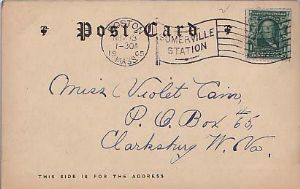 Post Card
BOSTON
1-30A
19 05
MASS.
SOMERVILLE
STATION
Miss Violet Cain,
P. O. Box 65,
Clarksburg W. Va.
THIS SIDE IS FOR THE ADDRESS